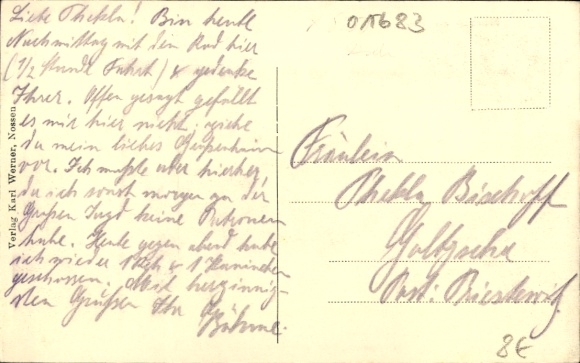 015683
Liebe Thekla! Bin heute
Nachmittag mit dem Rad hier
(1/2 Stunde Fahrt) & gedenke
Ihrer. Offen gesagt gefällt
es mir hier nicht, ziehe
da mein liebes Großenhain
vor. Ich mußte aber hierher,
da ich sonst morgen zu der
Großen Jagd keine Patronen
habe. Heute gegen abend habe
ich wieder 1 & 1 Kaninchen
geschossen. Mit herzinnig-
sten Grüßen Ihr
Böhme.
Verlag Karl Werner, Nossen
Fräulein
Thekla Bischoff
Goltzscha
Post: Priestewitz
8€